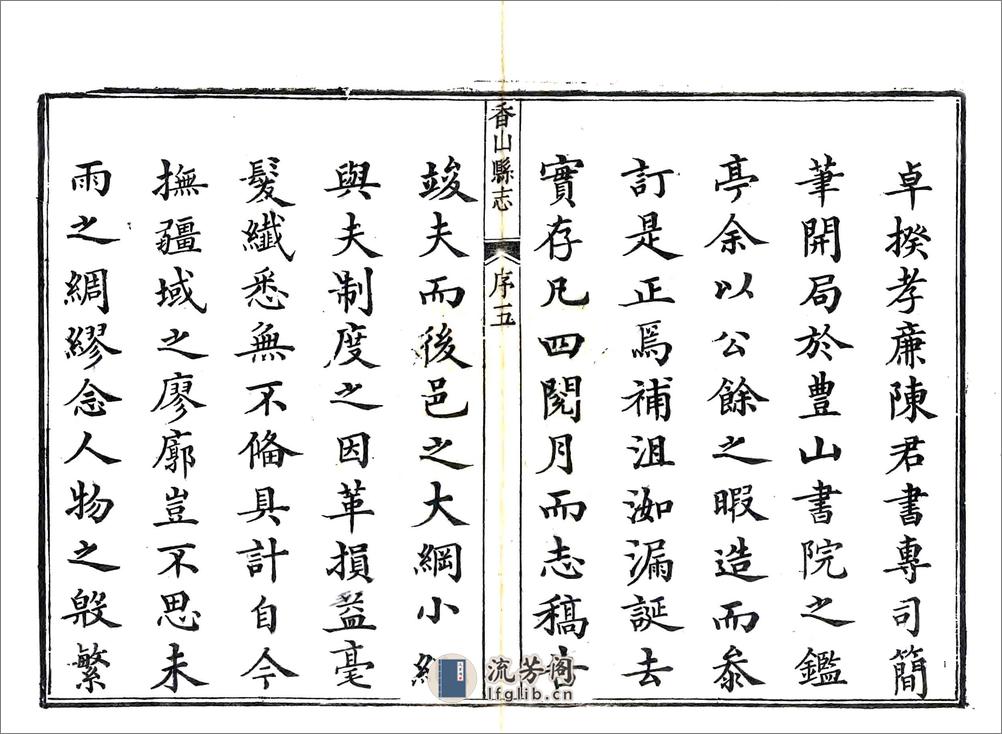 卓揆孝廉陳君書專司簡
筆開局於豊山書院之鑑
亭余以公餘之暇造而叅
訂是正焉補沮洳漏誕去
實存凡四閱月而志稿
香山縣志
序五
竣夫而後邑之大綱小
與夫制度之因革損益毫
髮纖悉無不俻具計自今
撫疆域之廖廓豈不思未
雨之綢繆念人物之殷繁
流芳阁
lfglib.cn